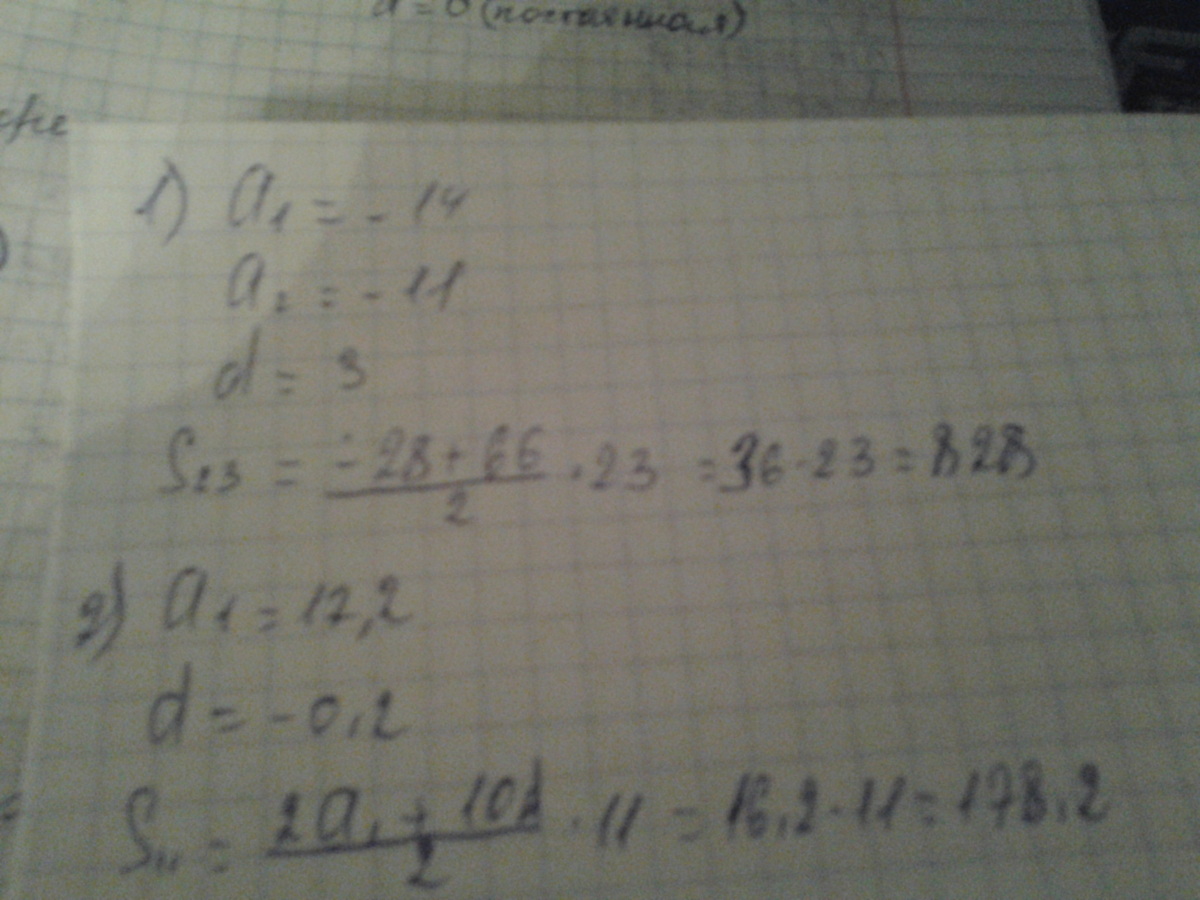 d = 0 (постоянная)
1) a₁ = - 14
a₂ = - 11
d = 3
S₂₃ = (- 28 + 66)/2 · 23 = 36 · 23 = 828
2) a₁ = 17,2
d = - 0,2
S₁₁ = (2a₁ + 10d)/2 · 11 = 16,2 · 11 = 178,2